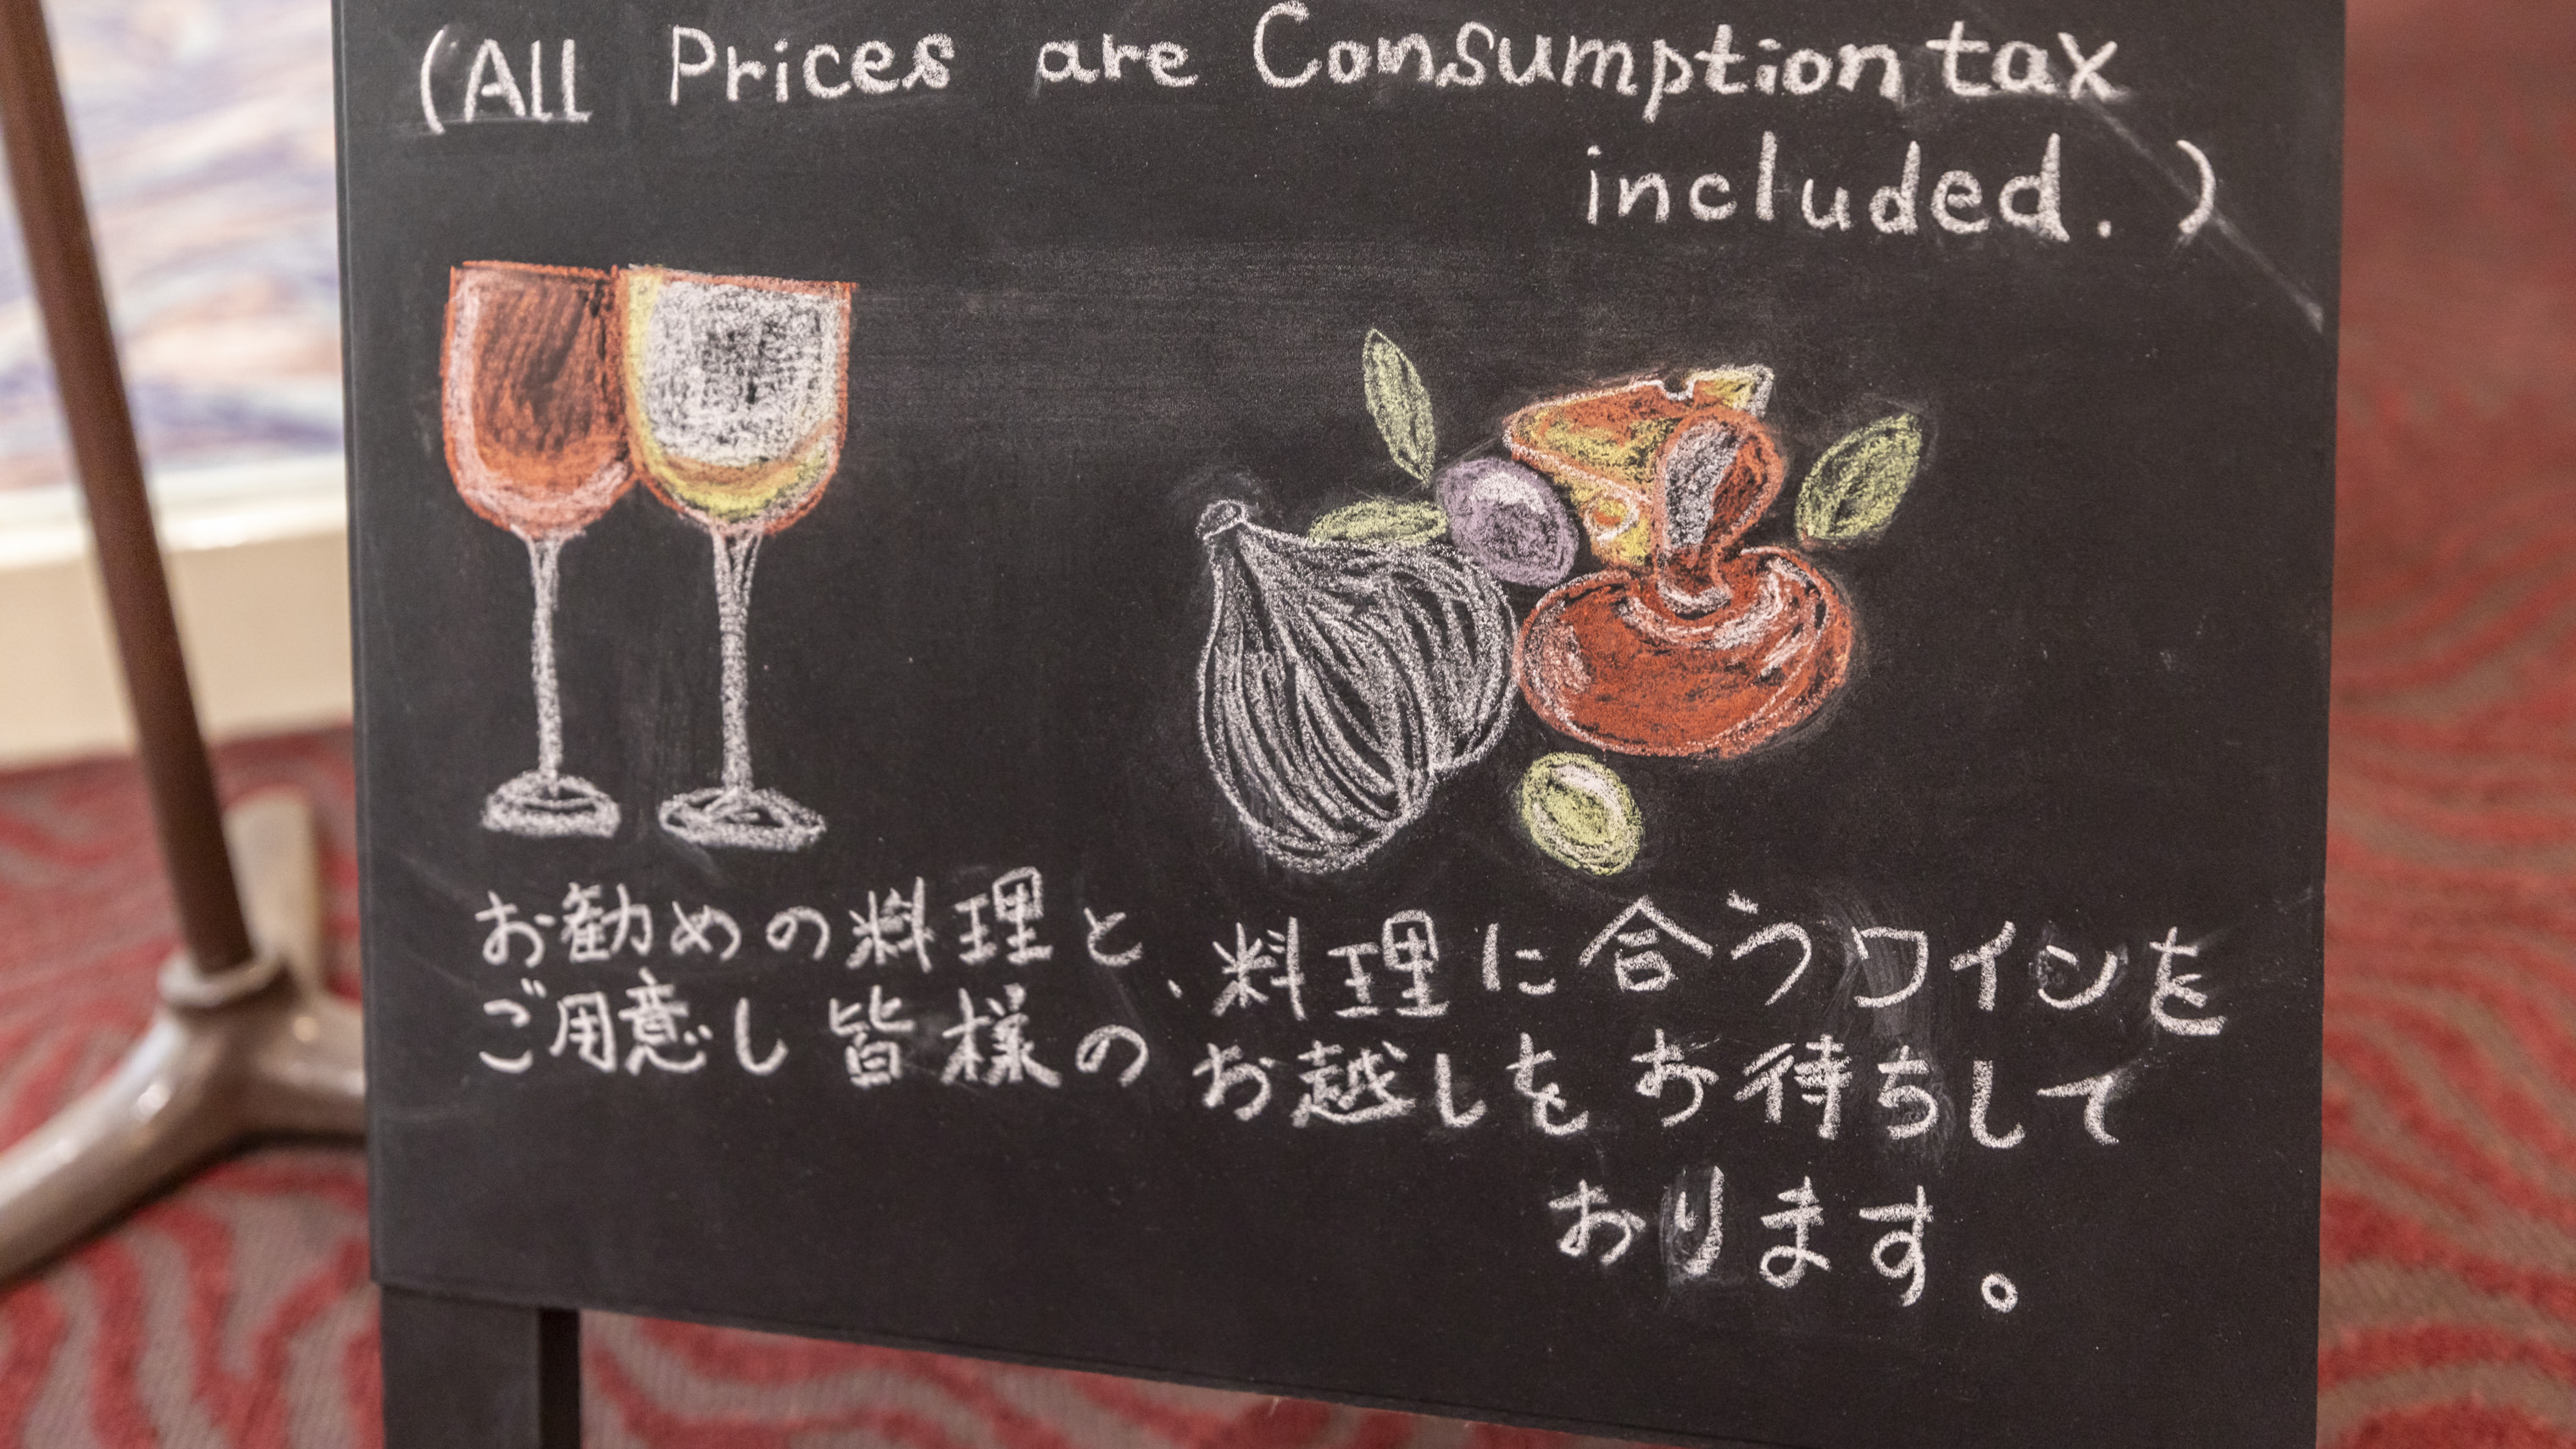 (All Prices are Consumption tax
included. )
お勧めの料理と、料理に合うワインを
ご用意し皆様のお越しをお待ちして
おります。